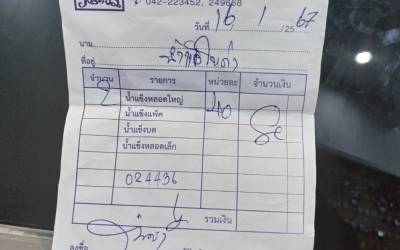 042-223452, 249668
วันที่ 16 / 1 / 2567
นาม
ที่อยู่
จำนวน รายการ หน่วยละ จำนวนเงิน
2 น้ำแข็งหลอดใหญ่ 40 80
น้ำแข็งแพ็ค
น้ำแข็งบด
น้ำแข็งหลอดเล็ก
024436
รวมเงิน
ลงชื่อ